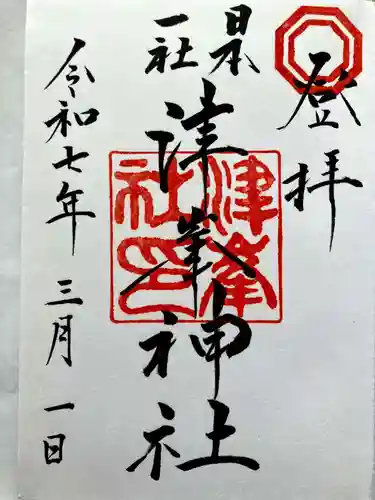 登拝
日本
一社
津峯神社
津峯
社印
令和七年 三月 一日